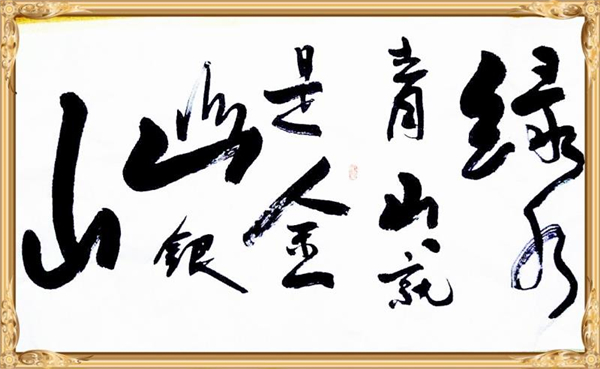 绿水
青山就
是金
山银
山